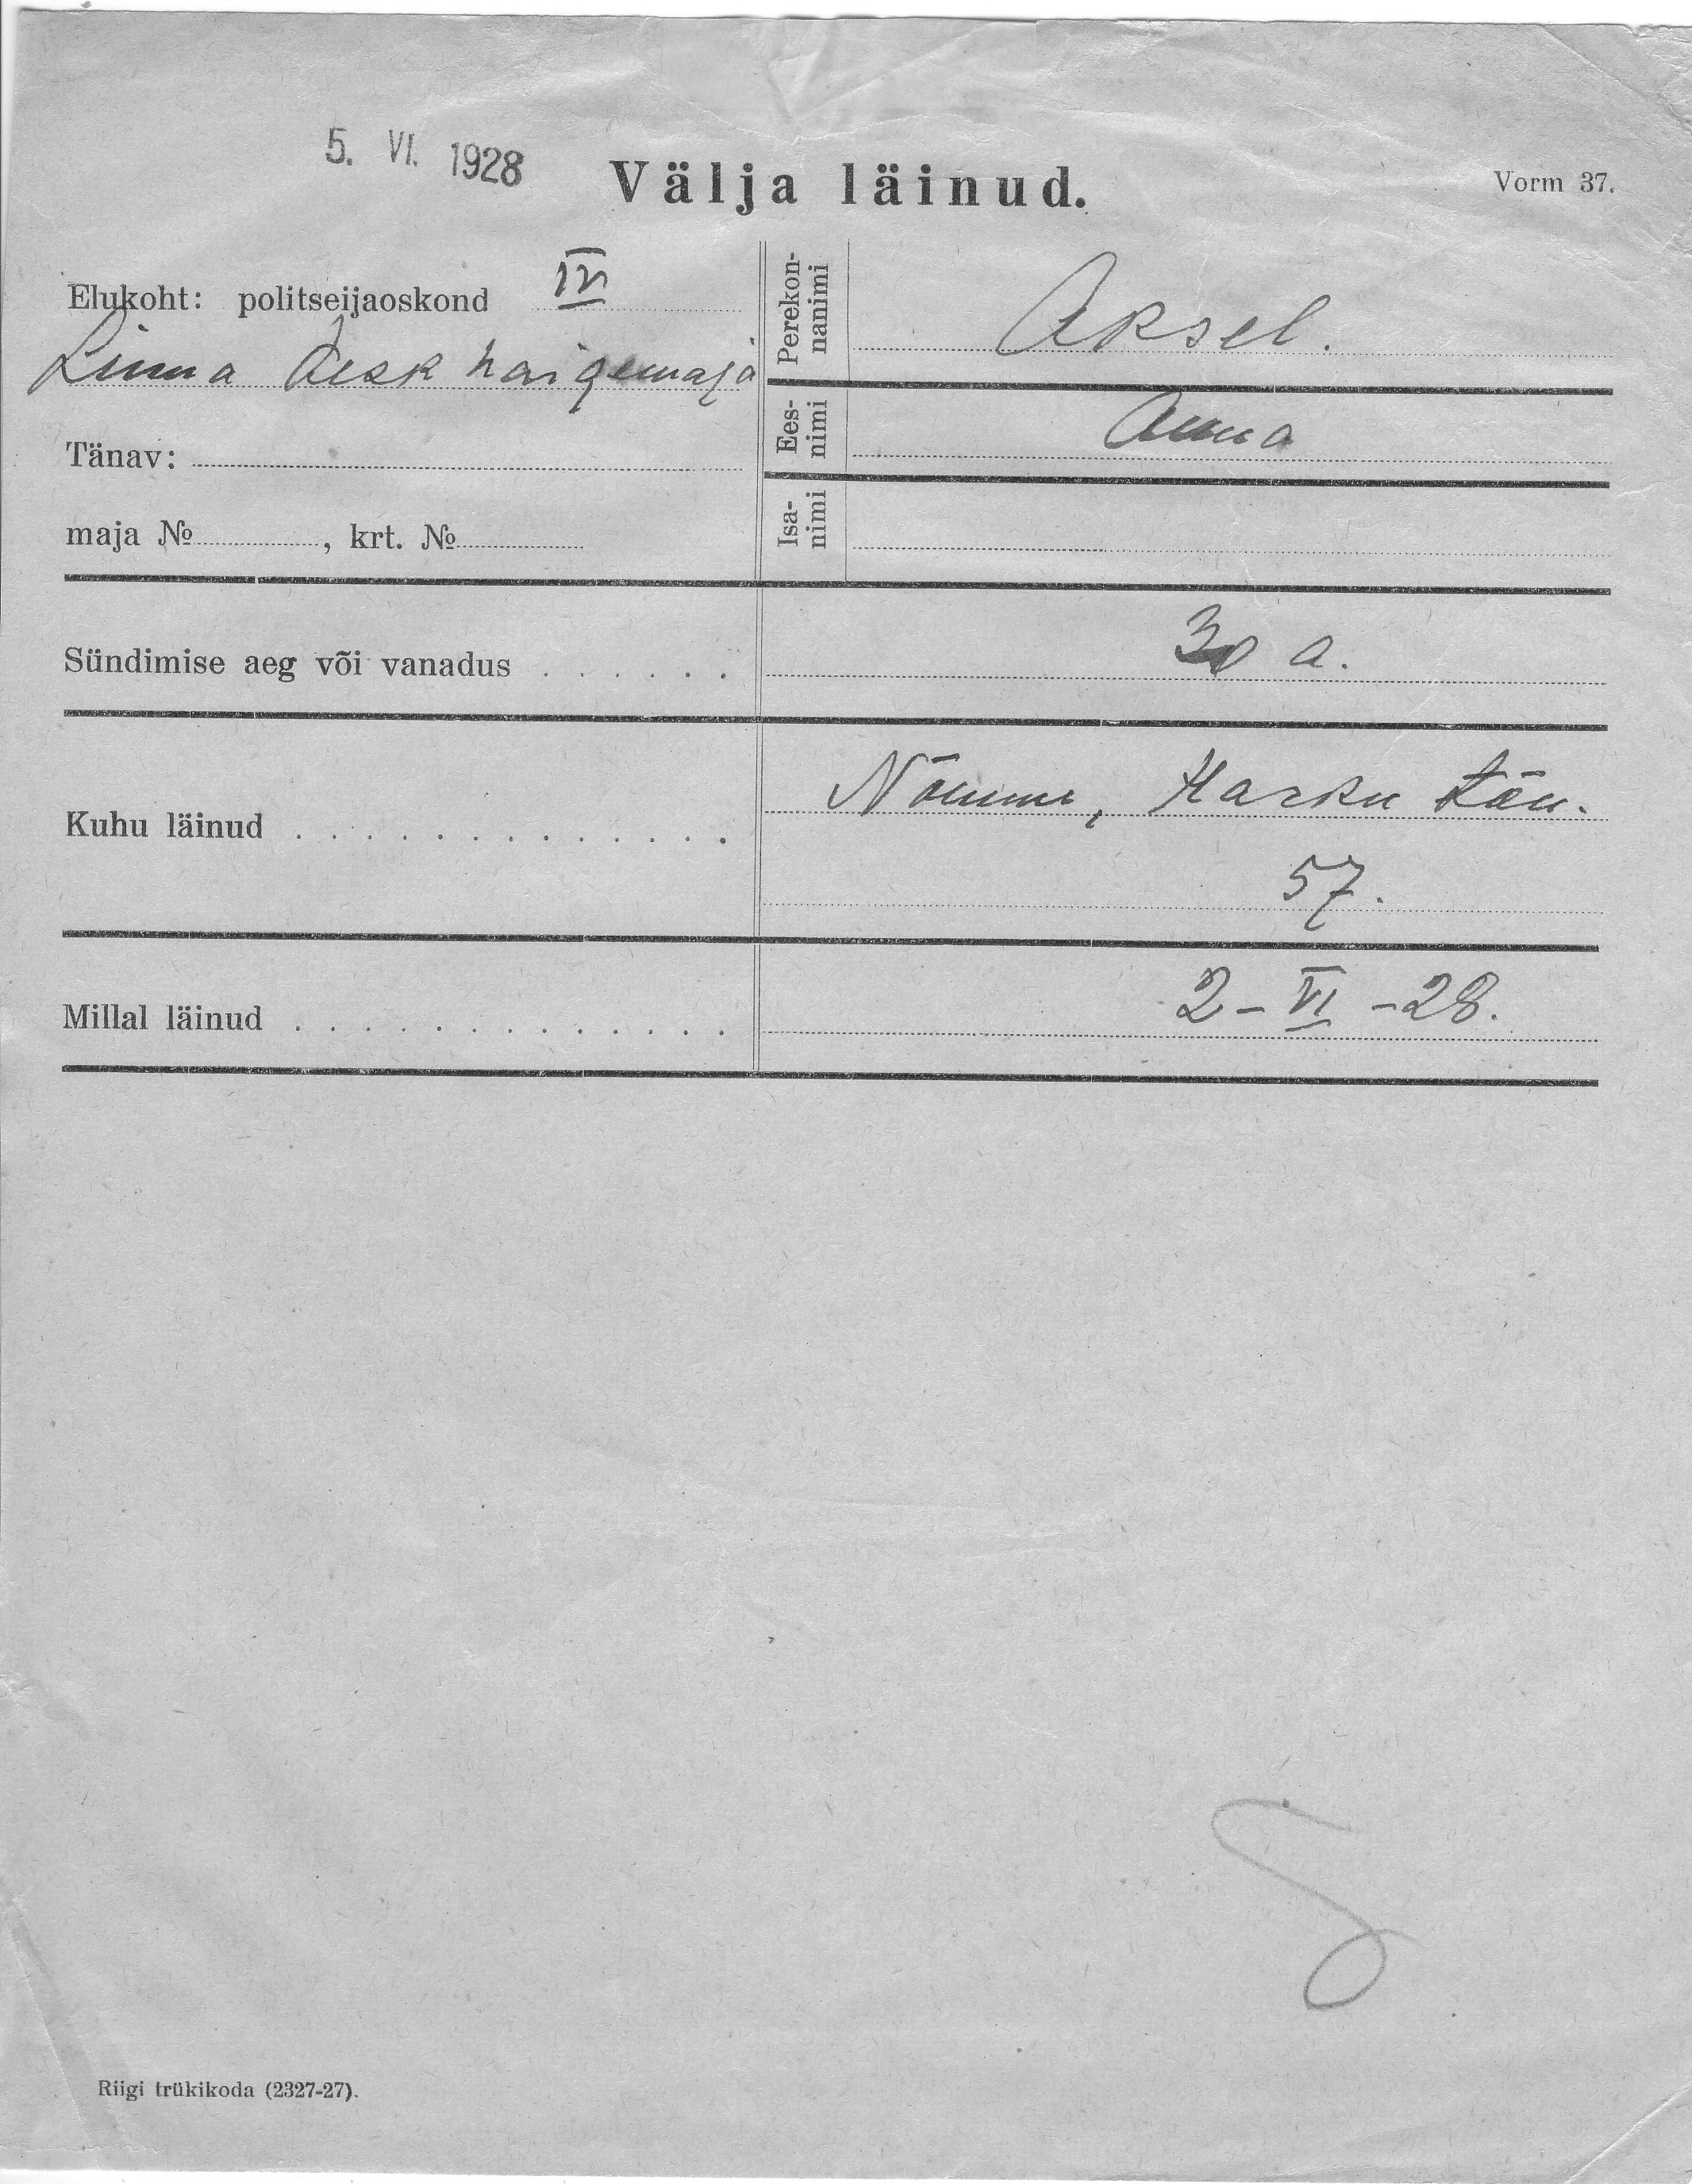 5. VI. 1928
Välja läinud.
Vorm 37.
Elukoht: politseijaoskond IV
Linna Keskhaigemaja
Tänav:
maja № , krt. №
Perekon-
nanimi
Aksel.
Ees-
nimi
Anna
Isa-
nimi
Sündimise aeg või vanadus . . . . . . 30 a.
Kuhu läinud . . . . . . . . . . . . . . Nõmme, Harku tän.
57.
Millal läinud . . . . . . . . . . . . . . 2-VI-28.
Riigi trükikoda (2327-27).